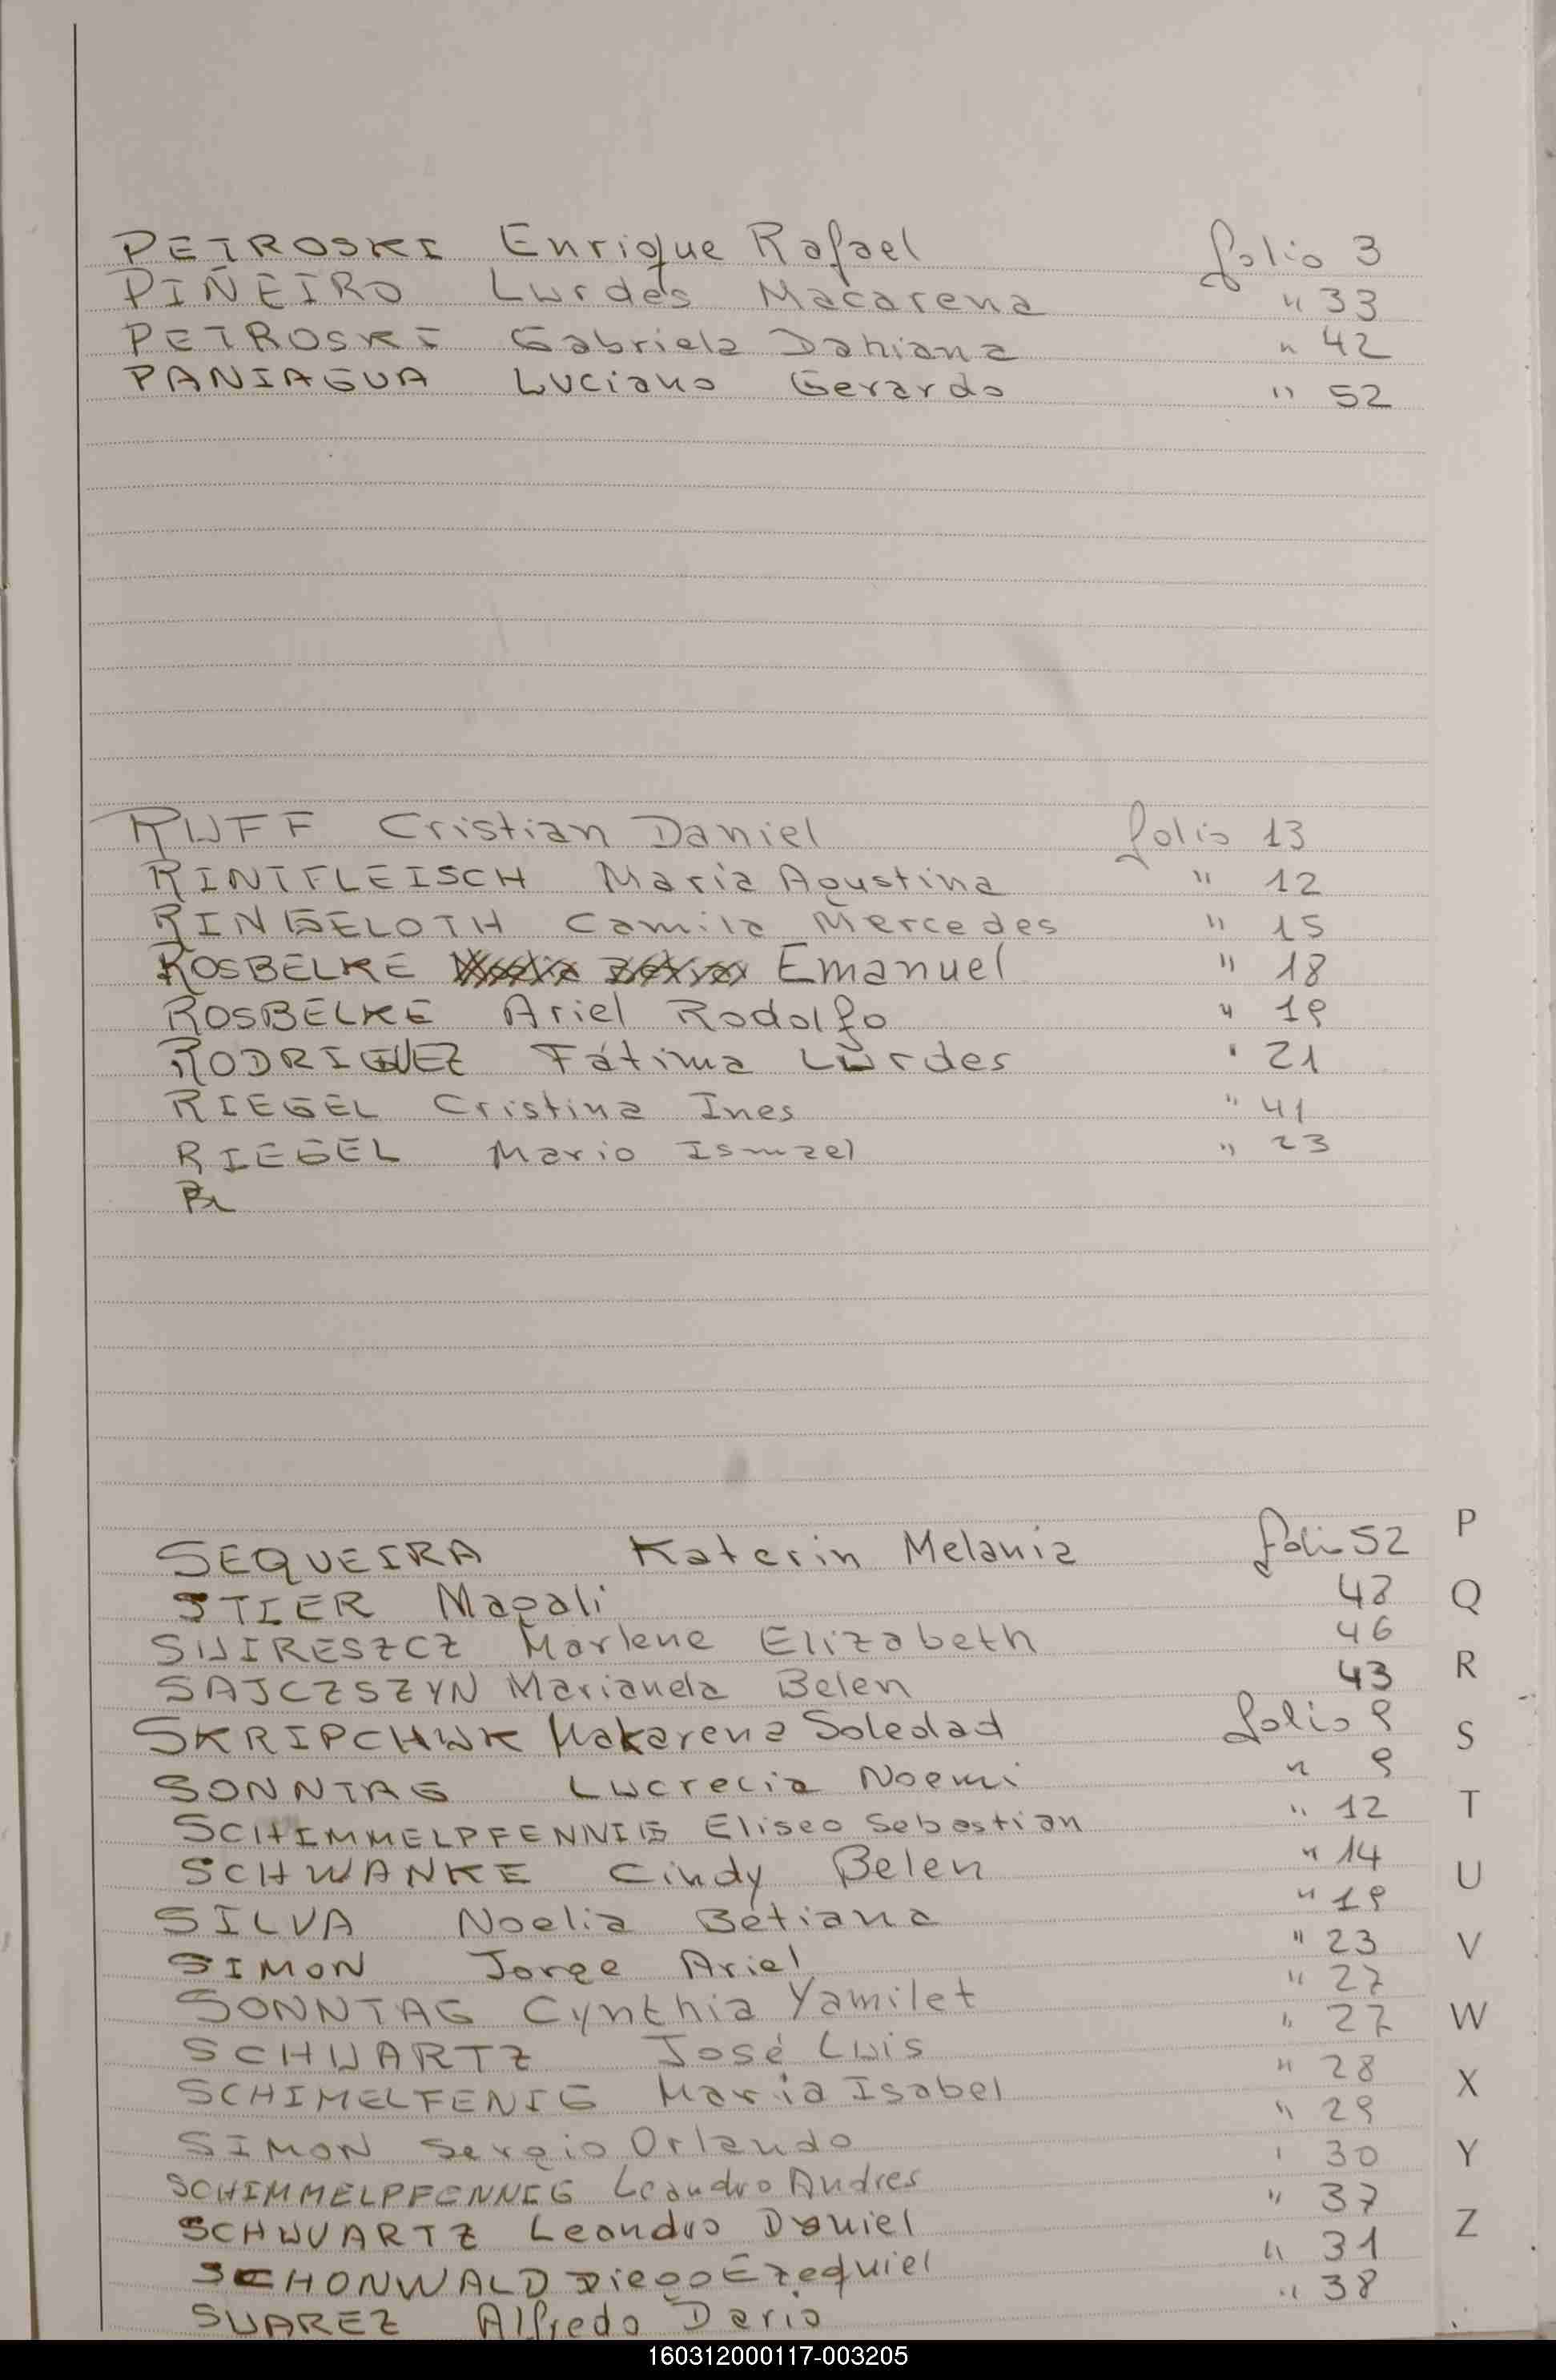 PETROSKI Enrique Rafael folio 3
PIÑEIRO Lurdes Macarena " 33
PETROSKI Gabriela Dahiana " 42
PANIAGUA Luciano Gerardo " 52
RUFF Cristian Daniel folio 13
RINTFLEISCH Maria Agustina " 12
RINGELOTH Camila Mercedes " 15
ROSBELKE Emanuel " 18
ROSBELKE Ariel Rodolfo " 19
RODRIGUEZ Fátima Lurdes " 21
RIEGEL Cristina Ines " 41
RIEGEL Mario Ismael " 23
SEQUEIRA Katerin Melania folio 52
STIER Magali 48
SWIRESZCZ Marlene Elizabeth 46
SAJCZSZYN Marianela Belen 43
SKRIPCHUK Makarena Soledad folio 9
SONNTAG Lucrecia Noemi " 9
SCHIMMELPFENNIG Eliseo Sebastian " 12
SCHWANKE Cindy Belen " 14
SILVA Noelia Betiana " 19
SIMON Jorge Ariel " 23
SONNTAG Cynthia Yamilet " 27
SCHWARTZ José Luis " 27
SCHIMELFENIG Maria Isabel " 28
SIMON Sergio Orlando " 29
SCHIMMELPFENNIG Leandro Andres " 30
SCHWARTZ Leandro Daniel " 37
SCHONWALD Diego Ezequiel " 31
SUAREZ Alfredo Dario " 38
P
Q
R
S
T
U
V
W
X
Y
Z
160312000117-003205